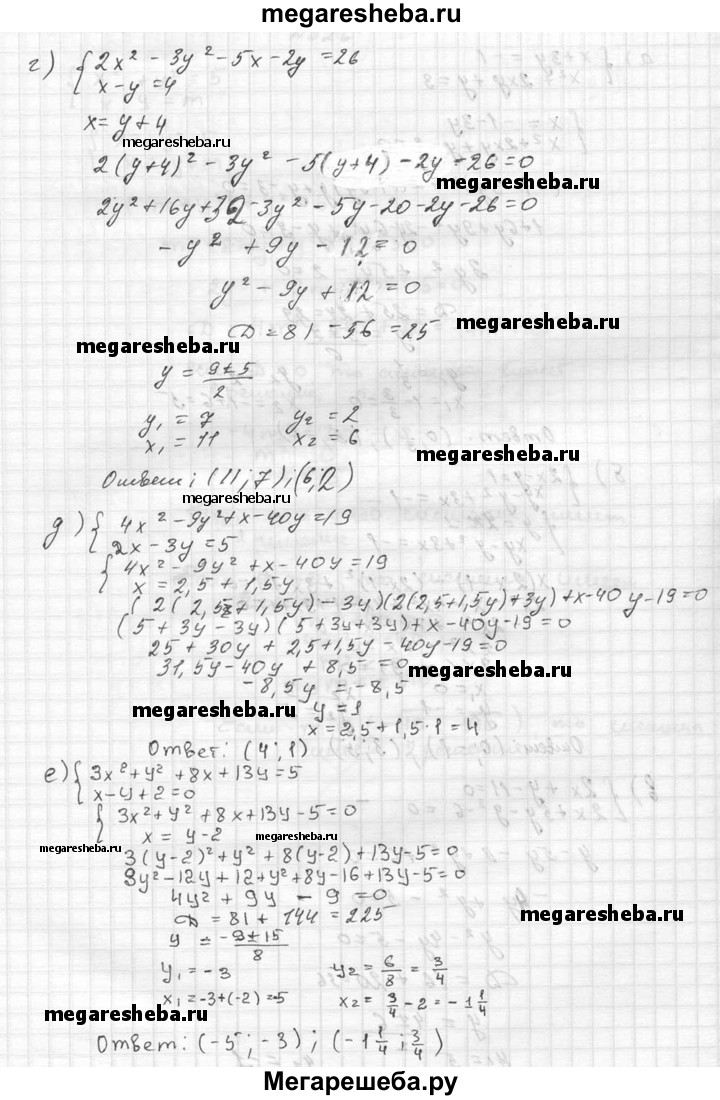 megaresheba.ru
г) { 2x² - 3y² - 5x - 2y = 26
x - y = 4
x = y + 4
megaresheba.ru
2(y+4)² - 3y² - 5(y+4) - 2y - 26 = 0
megaresheba.ru
2y² + 16y + 32 - 3y² - 5y - 20 - 2y - 26 = 0
- y² + 9y - 12 = 0
y² - 9y + 12 = 0
megaresheba.ru
D = 81 - 56 = 25
megaresheba.ru
y = (9±5)/2
y₁ = 7 y₂ = 2
x₁ = 11 x₂ = 6
Ответ: (11; 7); (6; 2)
megaresheba.ru
д) { 4x² - 9y² + x - 40y = 19
2x - 3y = 5
{ 4x² - 9y² + x - 40y = 19
x = 2,5 + 1,5y
(2(2,5 + 1,5y) - 3y)(2(2,5 + 1,5y) + 3y) + x - 40y - 19 = 0
(5 + 3y - 3y)(5 + 3y + 3y) + x - 40y - 19 = 0
25 + 30y + 2,5 + 1,5y - 40y - 19 = 0
31,5y - 40y + 8,5 = 0
megaresheba.ru
- 8,5y = - 8,5
megaresheba.ru
y = 1
x = 2,5 + 1,5·1 = 4
Ответ: (4; 1)
е) { 3x² + y² + 8x + 13y = 5
x - y + 2 = 0
{ 3x² + y² + 8x + 13y - 5 = 0
x = y - 2
megaresheba.ru
megaresheba.ru
3(y-2)² + y² + 8(y-2) + 13y - 5 = 0
3y² - 12y + 12 + y² + 8y - 16 + 13y - 5 = 0
4y² + 9y - 9 = 0
D = 81 + 144 = 225
megaresheba.ru
y = (-9±15)/8
y₁ = - 3 y₂ = 6/8 = 3/4
x₁ = -3 + (-2) = -5 x₂ = 3/4 - 2 = - 1 1/4
megaresheba.ru
Ответ: (-5; -3); (-1 1/4; 3/4)
Мегарешеба.ру